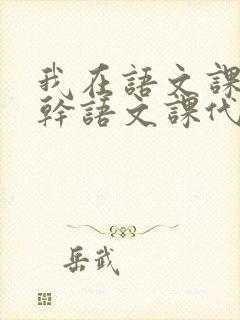 我在語文課
幹語文課代
岳武